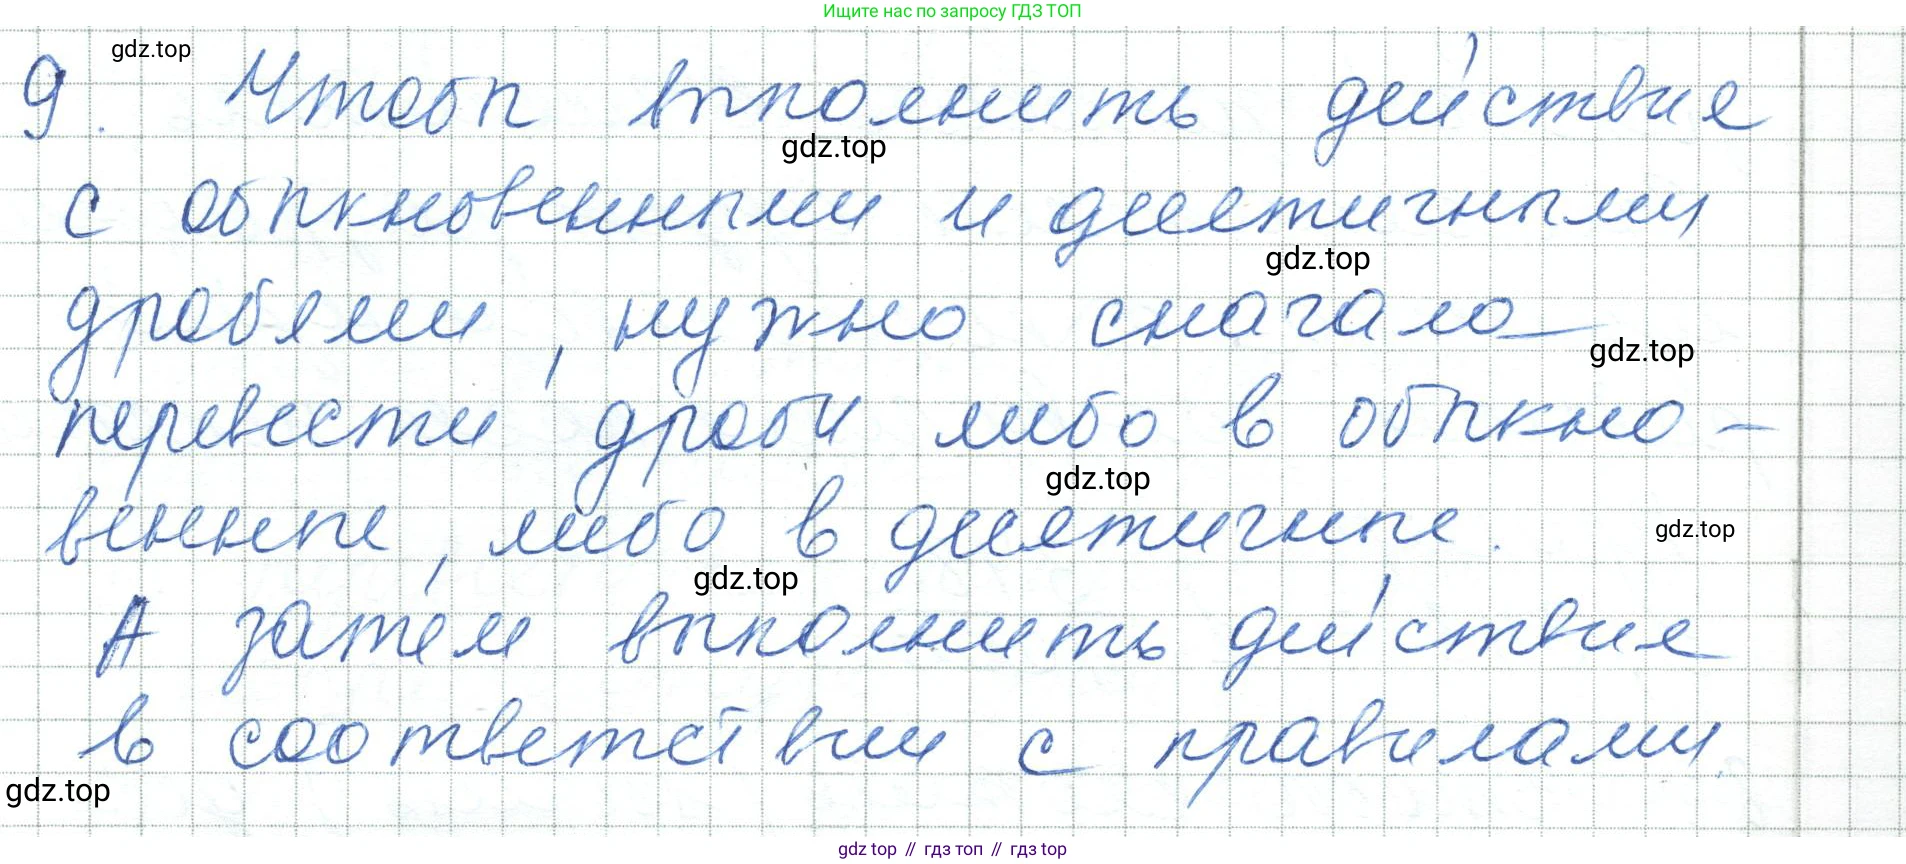 Ищите нас по запросу ГДЗ ТОП
gdz.top
9. Чтобы выполнить действие
gdz.top
с обыкновенными и десятичными
gdz.top
дробями, нужно сначала
gdz.top
перевести дроби либо в обыкно-
gdz.top
венные, либо в десятичные.
gdz.top
gdz.top
А затем выполнить действие
в соответствии с правилами.
gdz.top
gdz top // гдз топ // гдз top